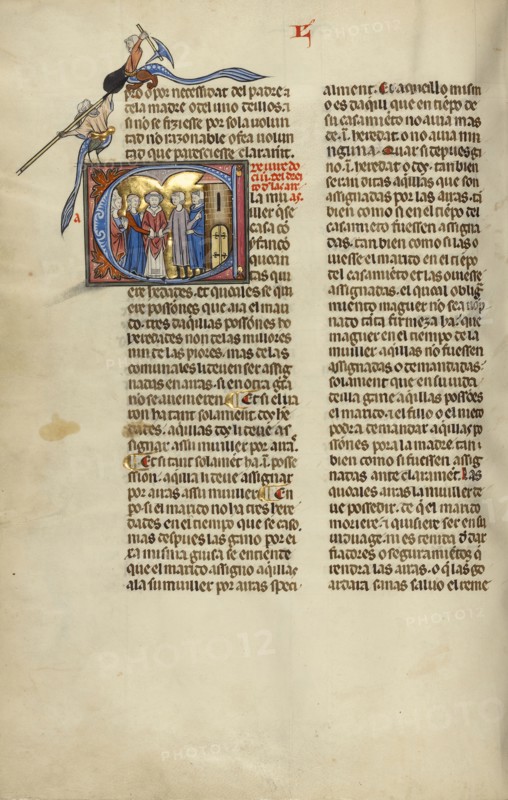 L
pro o por necessidat del padre ⁊
dela madre o del uno dellos. ⁊
si no se fiziesse por sola uolun
tad no razonable o fra uolun
tad que paresciesse clarament.
la mu
iller q̄ se
casa co
yfançō
quoan
tas qui
ere hedades. et quoales se qui
ere possiōnes que aia el mari
do. tres daquillas possiōnes ho
heredades non delas millores
nin delas piores. mas delas
comunales li deuen ser assig
nadas en arras. si en otra gisa
no se auenieren. Et si el ua
ron ha tant solament. dos he
dades. aquillas dos li deue as
signar assu muiller por arra.
Et si tant solamēt ha .i. posse
ssion. aquilla li deue assignar
por arras assu muiller. En
po si el marito no ha tres here
dades en el tiempo que se caso.
mas despues las gano por es
ta misma guisa se entiende
que el marito assigno aquillas
ala su muiller por arras speci
alment. Et aqueillo mism
o es daqui que en tiēpo de
su casamiēto no auia mas
de .i. heredat. o no auia nin
guna. Quar si depues ga
no .i. heredat o dos. tan bien
seran ditas aquillas que son
assignadas por las arras. tā
bien como si en el tiēpo del
casamiento fuessen assigna
das. tan bien como si las o
uiesse el marito en el tiēpo
del casamiēto et las ouiesse
assignadas. el qual oblig
miento maguer no sea
nado tāta firmeza ha. que
maguer en el tiempo de la
muiller aquillas no fuessen
assignadas o demandadas.
solament que en su uida
della gane aquillas possiōes
el marito. ⁊ el fillo o el nieto
podra demandar aquillas po
ssiōnes por la madre. tan
bien como si fuessen assig
nadas ante claramēt. Las
quoales arras la muiller de
ue possedir. de q̄ el marito
moriere. ⁊ quisiere ser en su
uiduage. ni es tenida de dar
fiadores o seguramiētos q̄
rendra las arras. o q̄ las go
ardara sanas saluo el teme
PHOTO12